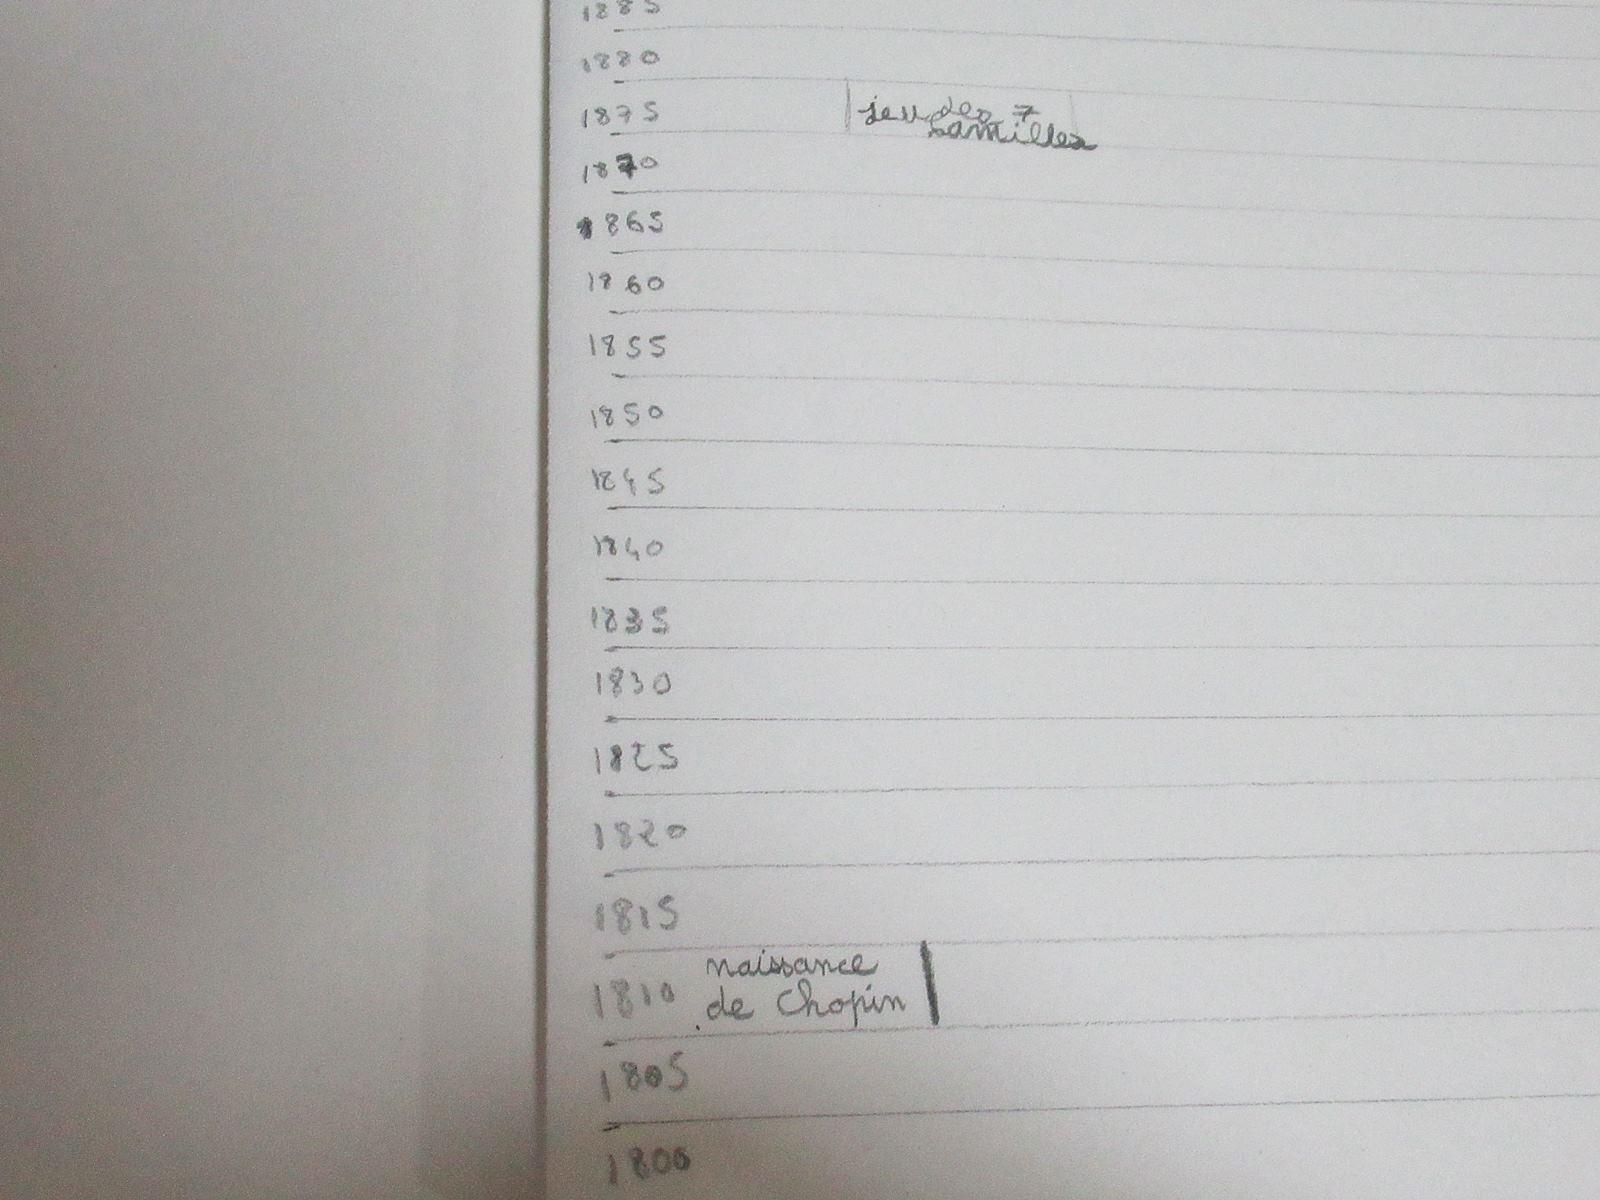 1885
1880
1875 jeu des 7
familles
1870
1865
1860
1855
1850
1845
1840
1835
1830
1825
1820
1815
naissance
1810 de Chopin
1805
1800